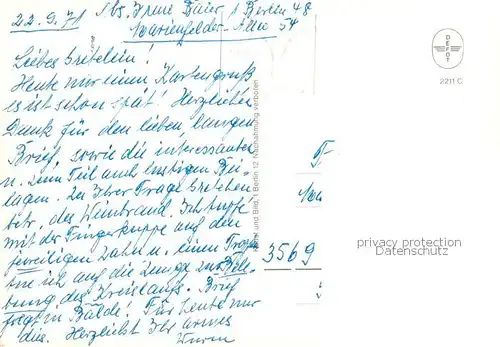 22.9.71 Abs. Irene Baier, 1 Berlin 48
Marienfelder-Allee 54
Liebes Gretelein!
Heute nur einen Kartengruß
es ist schon spät! Herzlichen
Dank für den lieben langen
Brief, sowie die interessanten
u. zum Teil auch lustigen Bei-
lagen. Zu Ihrer Frage Gretchen
betr. des Weinbrand. Ich tupfe
mit der Fingerkuppe auf den
jeweiligen Zahn u. einen Tropfen
tue ich auf die Zunge zur Bele-
bung des Kreislaufs. Brief
folgt in Bälde! Für heute nur
dies. Herzlichst Ihr armes
Wurm
3569
und Bild, 1 Berlin 12 Nachahmung verboten
DEFOT
2211 C
privacy protection
Datenschutz